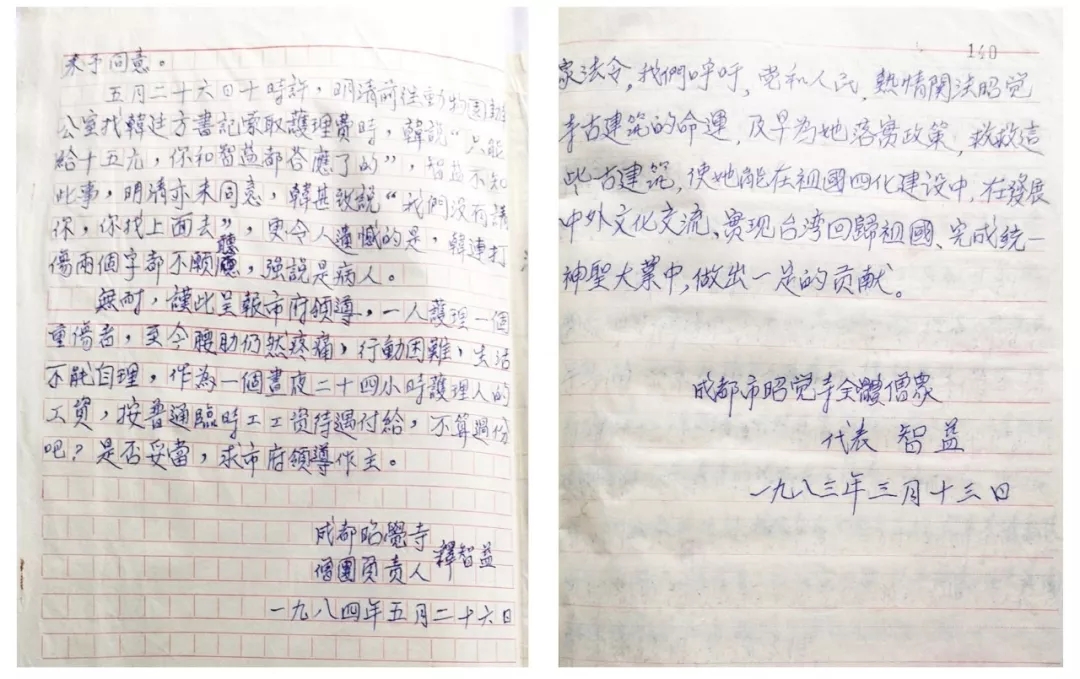 未予同意。
五月二十六日十時許，明清前往動物園辦
公室找韓廷方書記索取護理費時，韓說“只能
給十五元，你和智益都答應了的”，智益不知
此事，明清亦未同意，韓甚致說“我們没有請
你，你找上面去”，更令人遺憾的是，韓連打
傷兩個字都不願聽，強說是病人。
無耐，謹此呈報市府領導，一人護理一個
重傷者，至今腰肋仍然疼痛，行動困難，生活
不能自理，作為一個晝夜二十四小時護理人的
工資，按普通臨時工工资待遇付給，不算過份
吧？是否妥當，求市府領導作主。
成都昭覺寺
僧團負责人 釋智益
一九八四年五月二十六日
140
家法令，我們呼吁，党和人民，熱情関注昭覚
寺古建筑的命運，及早為她落實政策，救救這
些古建筑，使她能在祖國四化建设中，在發展
中外文化交流、實现台湾回歸祖國、完成统一
神聖大業中，做出一定的贡献。
成都市昭覚寺全體僧眾
代表 智益
一九八三年三月十三日